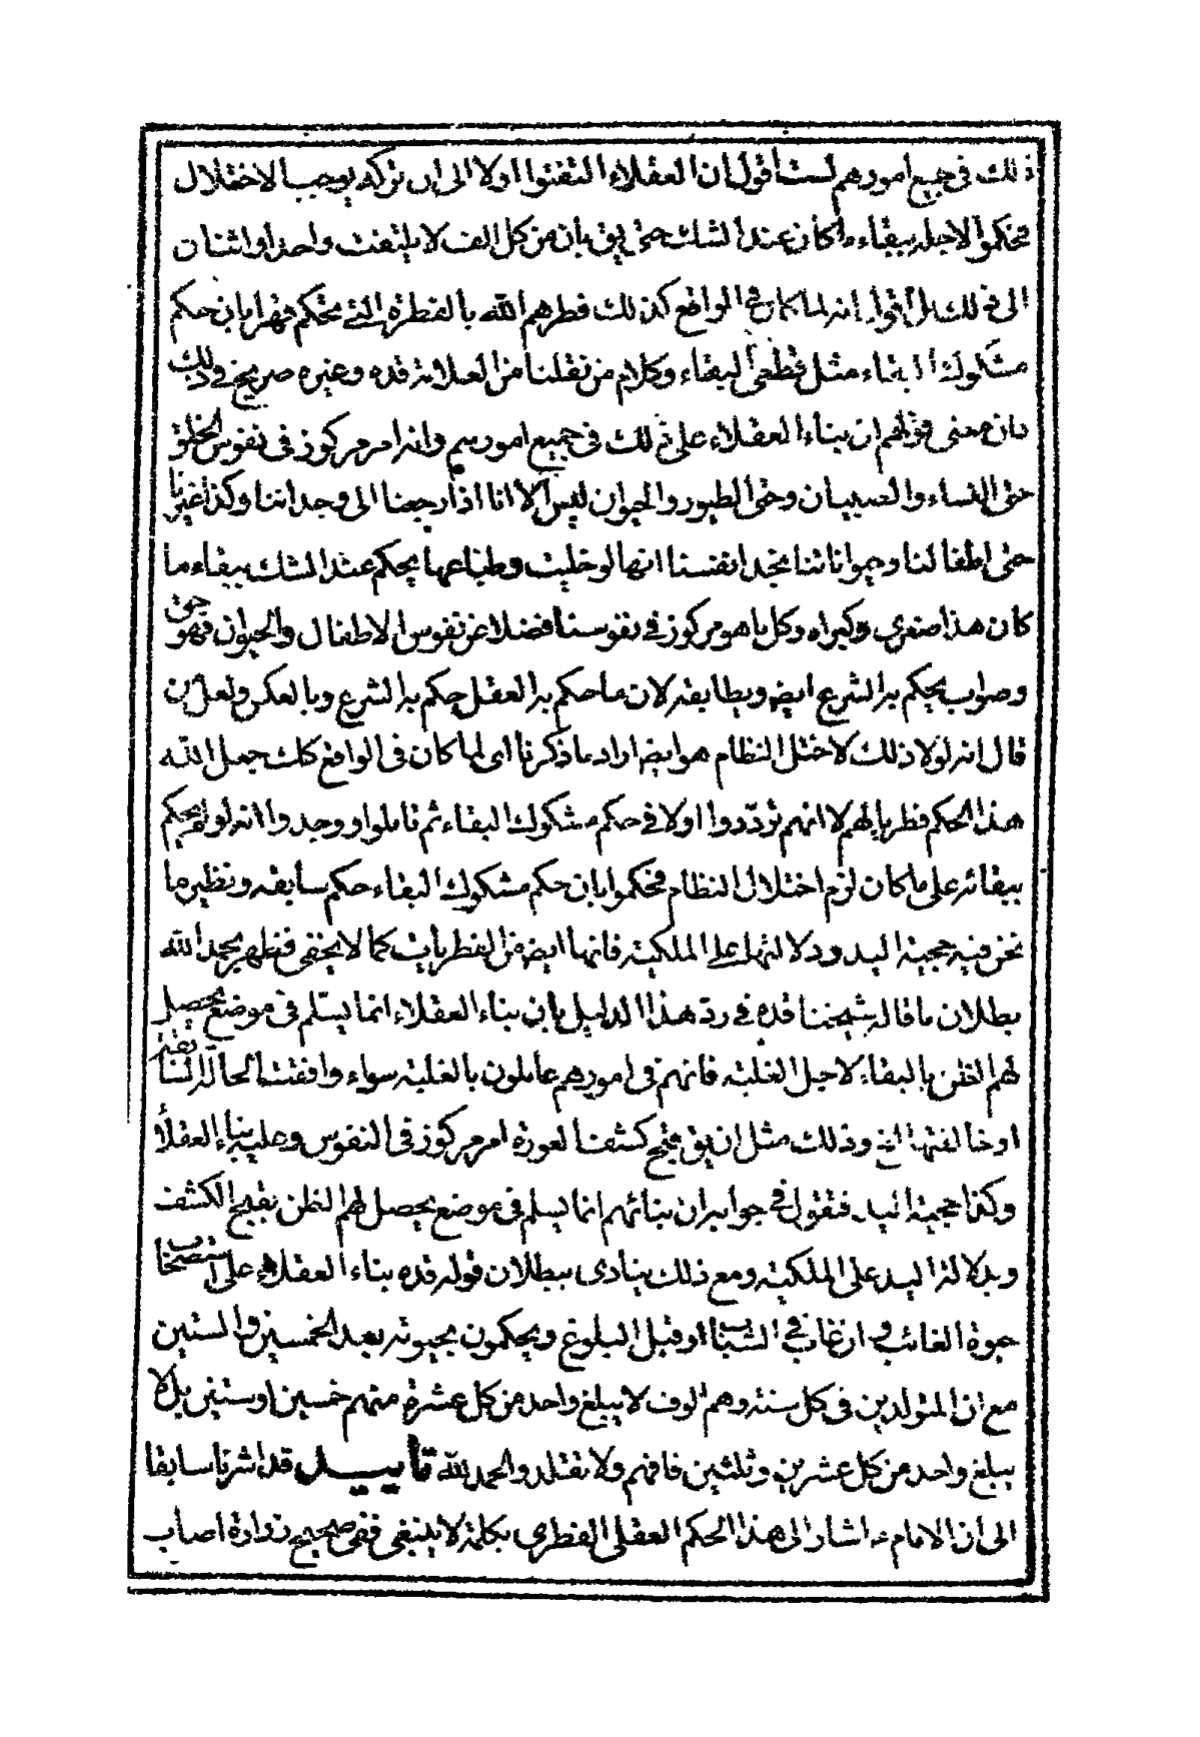 ذلك فى جميع امورهم لست اقول ان العقلاء التفتوا اولا الى ان تركه يوجب الاختلال
فحكموا لاجله ببقاء ما كان عند الشك حتى يق بان من كل الف لا يلتفت واحد او اثنان
الى ذلك بل اقول انه لما كان فى الواقع كذلك فطرهم الله بالفطرة التى تحكم قهرا بان حكم
مشكوك البقاء مثل قطعى البقاء وكلام من نقلنا من العلامة قده وغيره صريح فى ذلك
بان معنى قولهم ان بناء العقلاء على ذلك فى جميع امورهم وانه امر مركوز فى نفوس الخلق
حتى النساء والصبيان وحتى الطيور والحيوان ليس الا انا اذا رجعنا الى وجداننا وكذا غيرنا
حتى اطفالنا وحيواناتنا نجد انفسنا انها لو خليت وطباعها يحكم عند الشك ببقاء ما
كان هذا صغرى وكبراه وكل ما هو مركوز فى نفوسنا فضلا عن نفوس الاطفال والحيوان فهو حق
وصواب يحكم به الشرع ايض ويطابقه لان ما حكم به العقل حكم به الشرع وبالعكس ولعل من
قال انه لولا ذلك لاختل النظام هو ايض اراد ما ذكرنا اى لما كان فى الواقع كك جعل الله
هذا الحكم فطريا لهم لا انهم تردّدوا اولا فى حكم مشكوك البقاء ثم تاملوا ووجدوا انه لو لم يحكم
ببقائه على ما كان لزم اختلال النظام فحكموا بان حكم مشكوك البقاء حكم سابقه ونظير ما
نحن فيه حجية اليد ودلالتها على الملكية فانها ايض من الفطريات كما لا يخفى فظهر بحمد الله
بطلان ما قاله شيخنا قده فى ردّ هذا الدليل بان بناء العقلاء انما يسلّم فى موضع يحصل
لهم الظن بالبقاء لاجل الغلبة فانهم فى امورهم عاملون بالغلبة سواء وافقت الحالة السابقة
او خالفتها الخ وذلك مثل ان يق قبح كشف العورة امر مركوز فى النفوس وعليه بناء العقلاء
وكذا حجية اليد فنقول فى جوابه ان بنائهم انما يسلم فى موضع يحصل لهم الظن بقبح الكشف
وبدلالة اليد على الملكية ومع ذلك ينادى ببطلان قوله قده بناء العقلاء على استصحاب
حيوة الغائب وان غاب فى الشباب او قبل البلوغ ويحكمون بحيوته بعد الخمسين والستين
مع ان المتولدين فى كل سنة وهم الوف لا يبلغ واحد من كل عشرة منهم خمسين او ستين بل لا
يبلغ واحد من كل عشرين وثلثين فافهم ولا تقلد والحمد لله تأييد قد اشرنا سابقا
الى ان الامام ع اشار الى هذا الحكم العقلى الفطرى بكلمة لا ينبغى ففى صحيح زرارة اصاب